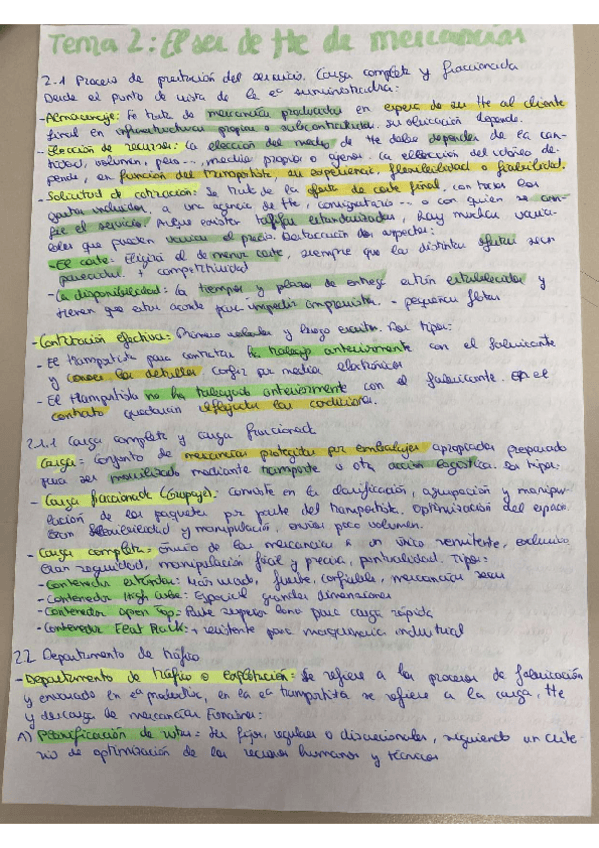 Tema 2: El ser de tte de mercancías
2.1 Proceso de prestación del servicio. Carga completa y fraccionada
Desde el punto de vista de la eª suministradora:
-Almacenaje: Se trata de mercancías producidas en espera de su tte al cliente
final en infraestructuras propias o subcontratadas. su ubicación depende.
-Elección de recursos: la elección del medio de tte debe depender de la can-
tidad, volumen, peso..., medios propios o ajenos. La elección del idóneo de-
pende, en función del transportista, su experiencia, flexibilidad o fiabilidad.
-Solicitud de cotización: Se trata de la oferta de coste final, con todos los
gastos incluidos, a una agencia de tte, consignatario... o con quien se con-
trate el servicio. Aunque existen tarifas estandarizadas, hay muchas varia-
bles que pueden variar el precio. Destacan dos aspectos:
-El coste: Elegirá el de menor coste, siempre que las distintas ofertas sean
parecidas. + competitividad
-La disponibilidad: Los tiempos y plazos de entrega están establecidos y
tienen que estar acorde para impedir imprevistos. - pequeñas flotas
-Contratación efectiva: Primero valorar y luego escoger. Dos tipos:
- El transportista para contratar ha trabajado anteriormente con el fabricante
y conoce los detalles por medios electrónicos
- El transportista no ha trabajado anteriormente con el fabricante. En el
contrato quedarán reflejadas las condiciones.
2.1.1 Carga completa y carga fraccionada
Carga: Conjunto de mercancías protegidas por embalajes apropiados preparado
para ser movilizado mediante transporte u otra acción logística. Dos tipos:
- Carga fraccionada (Grupaje): consiste en la clasificación, agrupación y manipu-
lación de los paquetes por parte del transportista. Optimización del espacio.
Gran flexibilidad y manipulación, envíos poco volumen.
- Carga completa: Envío de las mercancías a un único remitente, exclusivo
Gran seguridad, manipulación fácil y precisa, puntualidad. Tipos:
-Contenedor estándar: Más usado, fuerte, confiable, mercancías secas
-Contenedor High cube: Especial grandes dimensiones
-Contenedor Open Top: Parte superior lona para carga rápida
-Contenedor Flat Rack: + resistente para maquinaria industrial
2.2 Departamento de tráfico
-Departamento de tráfico o explotación: Se refiere a los procesos de fabricación
y envasado en eª productora, en la eª transportista se refiere a la carga, tte
y descarga de mercancías. Funciones:
A) Planificación de rutas: Ser fijas, regulares o discrecionales, siguiendo un crite-
rio de optimización de los recursos humanos y técnicos